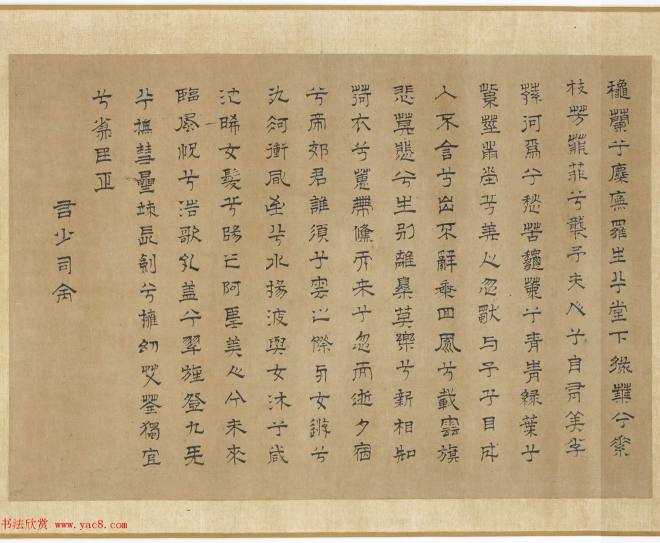 穐蘭兮麋蕪羅生兮堂下綠葉兮素
枝芳菲菲兮襲予夫人兮自有美子
蓀何爲兮愁苦穐蘭兮青青綠葉兮
紫莖滿堂兮美人忽獨与予兮目成
入不言兮出不辭乘回風兮載雲旗
悲莫悲兮生別離樂莫樂兮新相知
荷衣兮蕙帶儵而來兮忽而逝夕宿
兮帝郊君誰須兮雲之際与女遊兮
九河衝風至兮水揚波與女沐兮咸
池晞女髮兮陽之阿望美人兮未來
臨風怳兮浩歌孔蓋兮翠旌登九天
兮撫彗星竦長劍兮擁幼艾荃獨宜
兮爲民正
右少司命
书法欣赏 www.yac8.com